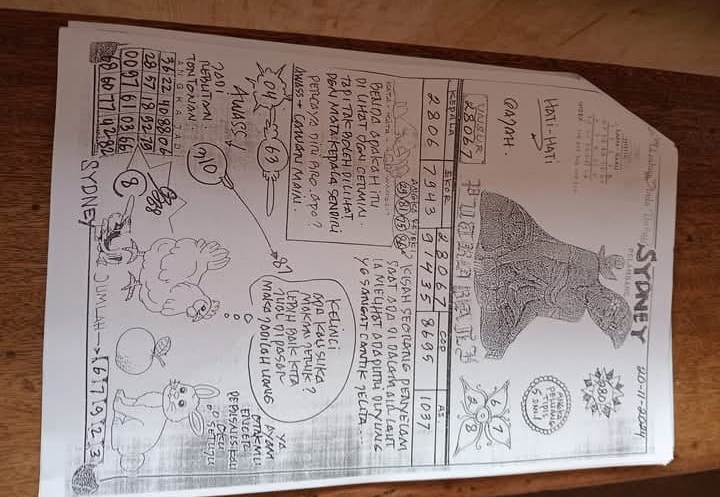 SYDNEY
20-11-2024
PELAMBANG
MISTIK
LAMA - BARU
INDEX
280
HATI-HATI
GAJAH.
ANGKA
PELUANG
TIPIS
5 DM!
6 7
2 8
UNSUR
28067
PUTRA BALI
KEPALA EKOR 28067 COP AS.
2806 7943 91435 8695 1037
ANGKA REJEKI
29 81 75 86
KATA - KATA
BENDA APAKAH ITU
DI LIHAT DGN CERMIN.
TAPI TAK BOLEH DILIHAT
DGN MATA KEPALA SENDIRI
PERCAYA DIRI BRO. APA?
AWASS → CAWAN MAIN.
KISAH SEORANG PENYELAM
SAAT ADA DI DALAM AIR LAUT
IA MELIHAT ADA PUTRI DUYUNG
YG SANGAT CANTIK JELITA...
KELINCI
APA KAU SUKA
MAKAN JERUK?
LEBIH BAIK KITA
JUAL DI PASAR
MAKA JADILAH UANG
04 63
87
YA
AYAM
OTAKMU
ENCER
BEBISNIS KAU
AKU
SETUJU
AWASS!
JADI
REBUTAN.
TONTONAN.
310
ANGKA JADI
36 22 40 88 06
28 57 18 92 79
00 97 61 03 66
68 60 77 42 82
8
JUMLAH → 6 7 9 2 3
SYDNEY